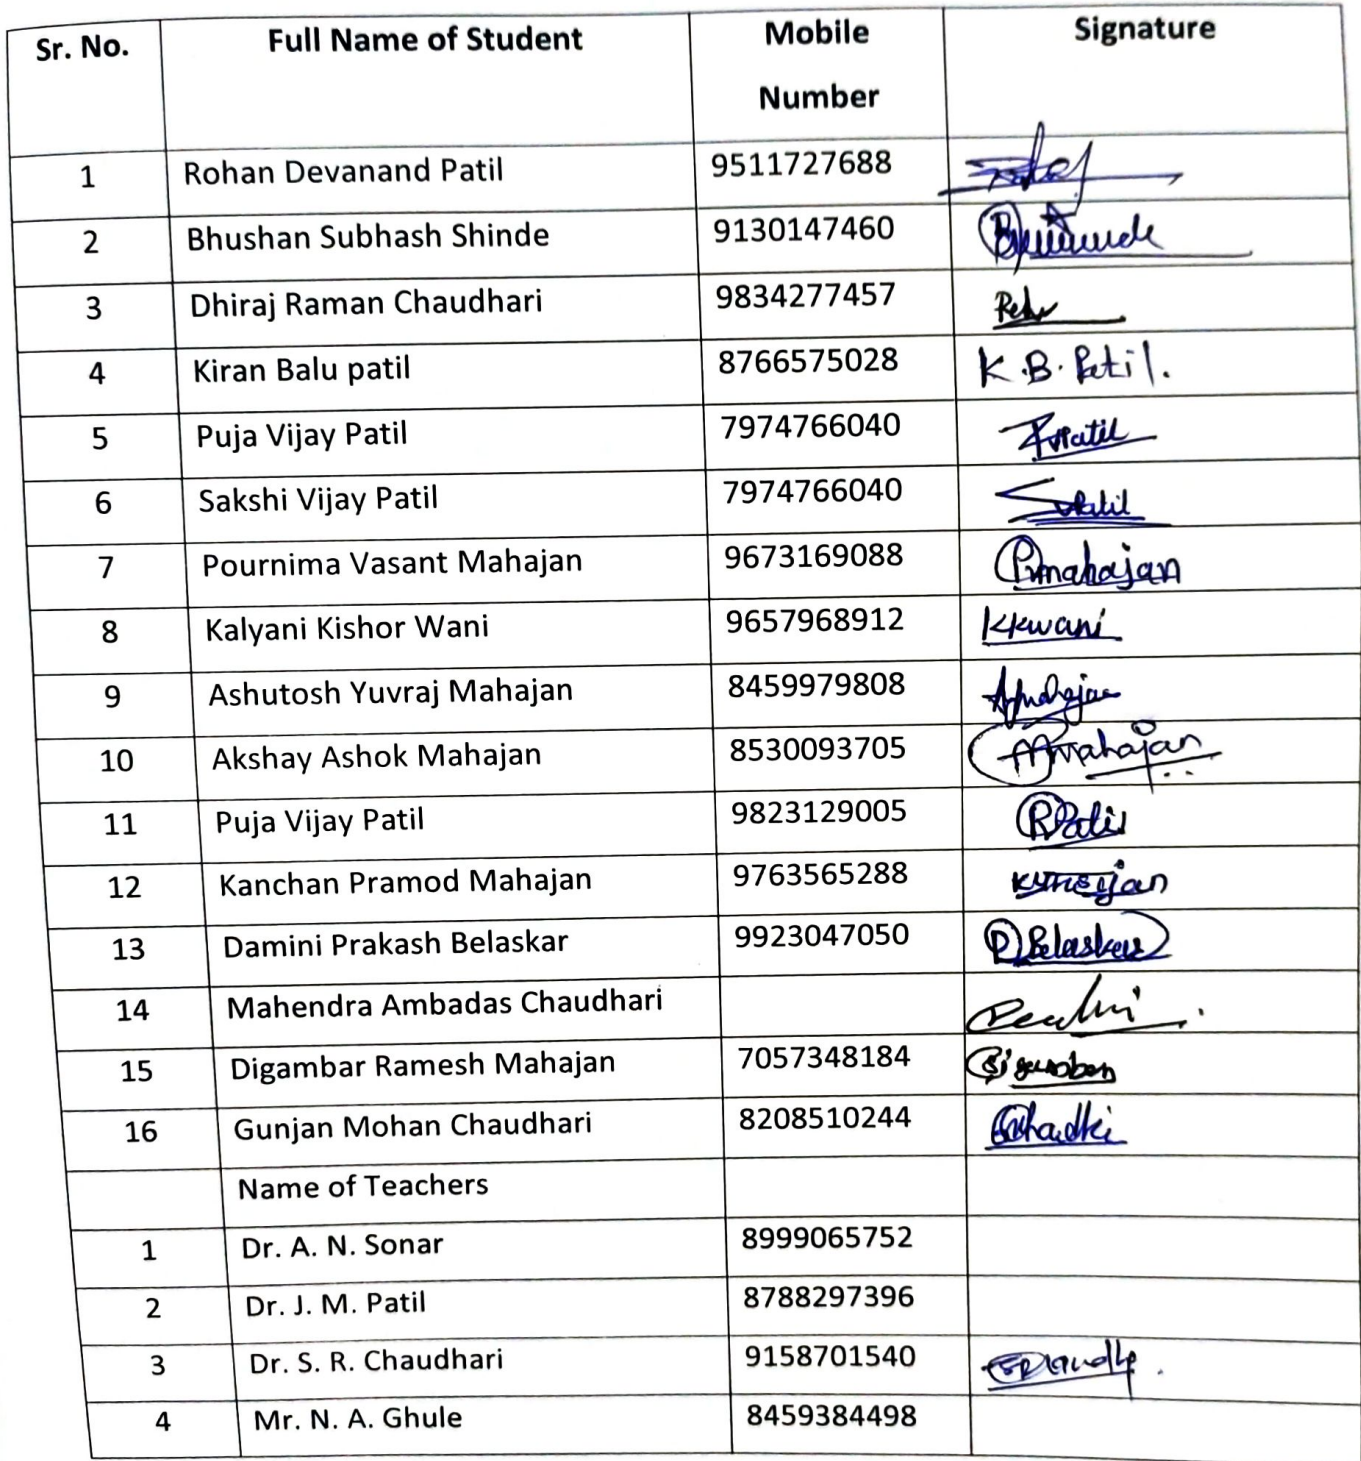 Sr. No. Full Name of Student Mobile Number Signature
1 Rohan Devanand Patil 9511727688
2 Bhushan Subhash Shinde 9130147460
3 Dhiraj Raman Chaudhari 9834277457
4 Kiran Balu patil 8766575028 K.B. Patil.
5 Puja Vijay Patil 7974766040
6 Sakshi Vijay Patil 7974766040
7 Pournima Vasant Mahajan 9673169088 Pmahajan
8 Kalyani Kishor Wani 9657968912 KKwani
9 Ashutosh Yuvraj Mahajan 8459979808
10 Akshay Ashok Mahajan 8530093705
11 Puja Vijay Patil 9823129005
12 Kanchan Pramod Mahajan 9763565288
13 Damini Prakash Belaskar 9923047050
14 Mahendra Ambadas Chaudhari
15 Digambar Ramesh Mahajan 7057348184
16 Gunjan Mohan Chaudhari 8208510244
Name of Teachers
1 Dr. A. N. Sonar 8999065752
2 Dr. J. M. Patil 8788297396
3 Dr. S. R. Chaudhari 9158701540
4 Mr. N. A. Ghule 8459384498